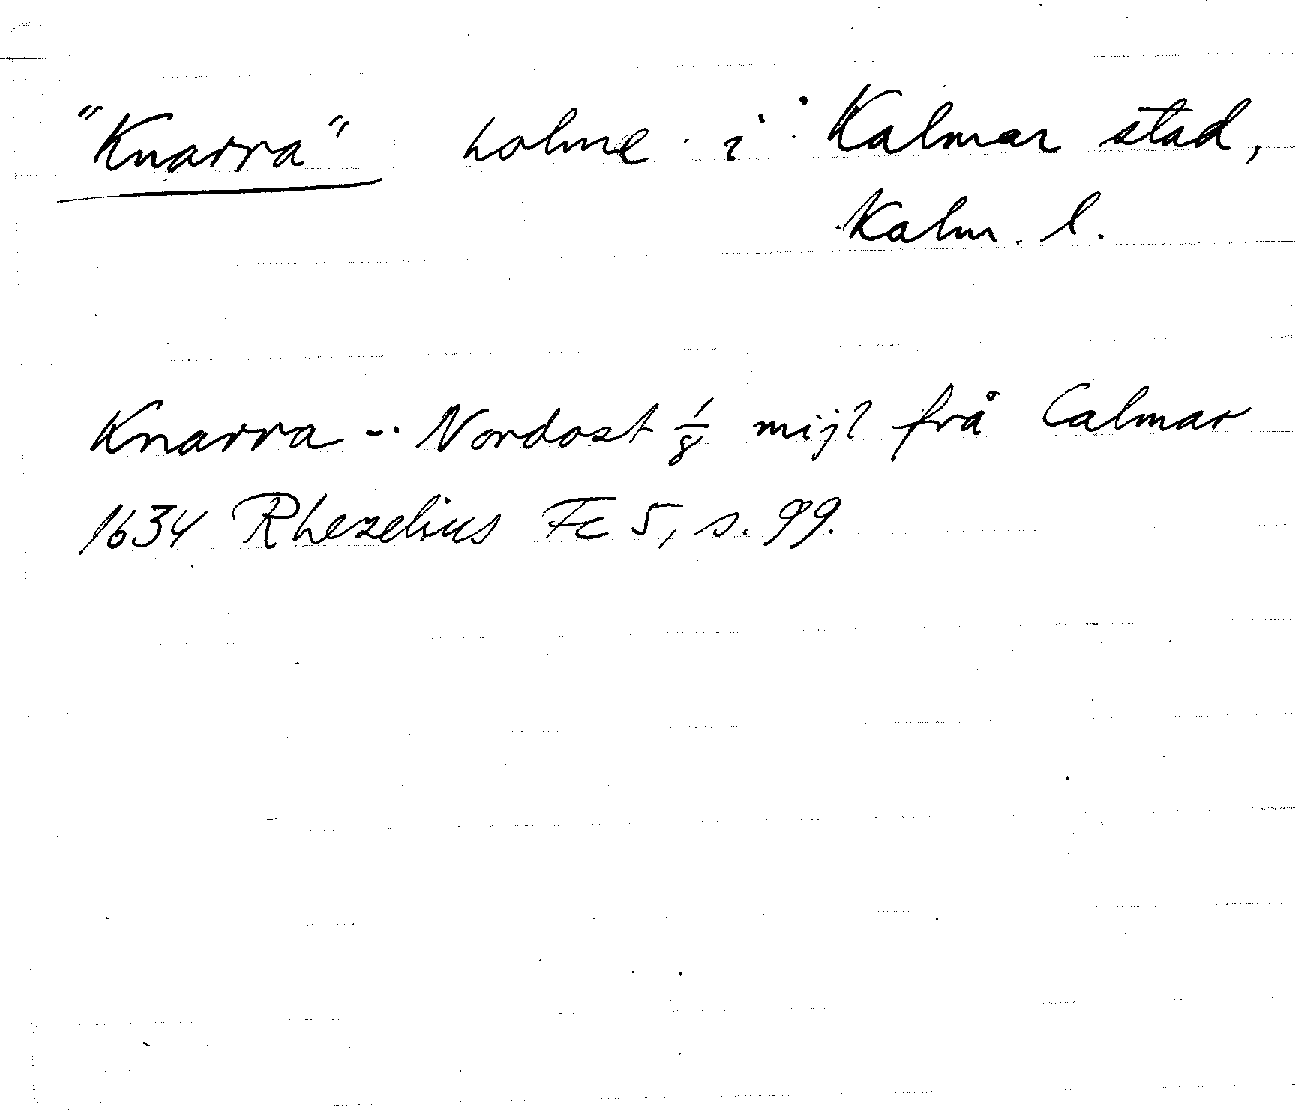 "Knarra" holme i Kalmar stad,
Kalm. l.
Knarra -- Nordost 1/8 mijl frå Calmar
1634 Rhezelius Fc 5, s. 99.